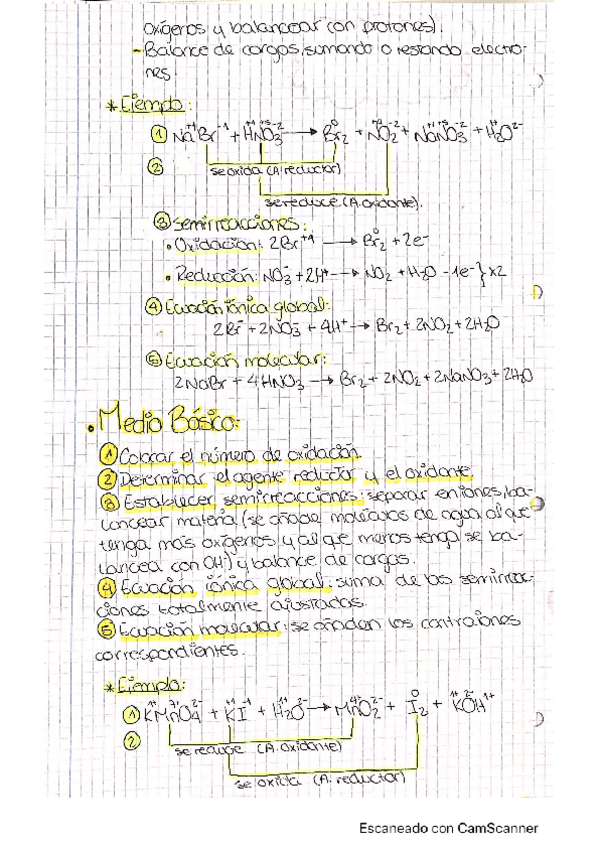 oxígenos y balancear con protones).
- Balance de cargos, sumando o restando electro-
nes
* Ejemplo:
① Na⁺¹Br⁻¹ + H⁺¹N⁺⁵O₃⁻² → Br₂⁰ + N⁺⁴O₂⁻² + Na⁺¹N⁺⁵O₃⁻² + H₂¹⁺O²⁻
② se oxida (A. reductor)
se reduce (A. oxidante).
③ Semirreacciones:
• Oxidación: 2Br⁺¹ → Br₂⁰ + 2e⁻
• Reducción: NO₃⁻ + 2H⁺ → NO₂ + H₂O - 1e⁻} x2
④ Ecuación iónica global:
2Br⁻ + 2NO₃⁻ + 4H⁺ → Br₂ + 2NO₂ + 2H₂O
⑤ Ecuación molecular:
2NaBr + 4HNO₃ → Br₂ + 2NO₂ + 2NaNO₃ + 2H₂O
• Medio Básico:
① Colocar el número de oxidación.
② Determinar el agente reductor y el oxidante.
③ Establecer semirreacciones: separar en iones, ba-
lancear materia (se añade moléculas de agua al que
tenga más oxígenos y al que menos tenga se ba-
lancea con OH⁻) y balance de cargos.
④ Ecuación iónica global: suma de las semirreac-
ciones totalmente ajustadas.
⑤ Ecuación molecular: se añaden los contraiones
correspondientes.
* Ejemplo:
① K¹⁺Mn⁷⁺O₄²⁻ + K⁺¹I⁻¹ + H₂¹⁺O²⁻ → Mn⁴⁺O₂²⁻ + I₂⁰ + K¹⁺O²⁻H¹⁺
② se reduce (A. oxidante)
se oxida (A. reductor)
Escaneado con CamScanner